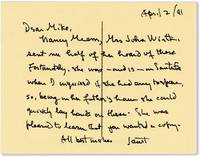 April 2/91
Dear Mike,
Nancy Mearn, Mrs John Winter,
sent me half of the hoard of these
Fortunately, she was – and is – in Santa Fe
when I inquired if she had any
so, being in her father's house she could
quickly lay hands on these. She was
pleased to learn that you wanted a copy.
All best wishes Janet